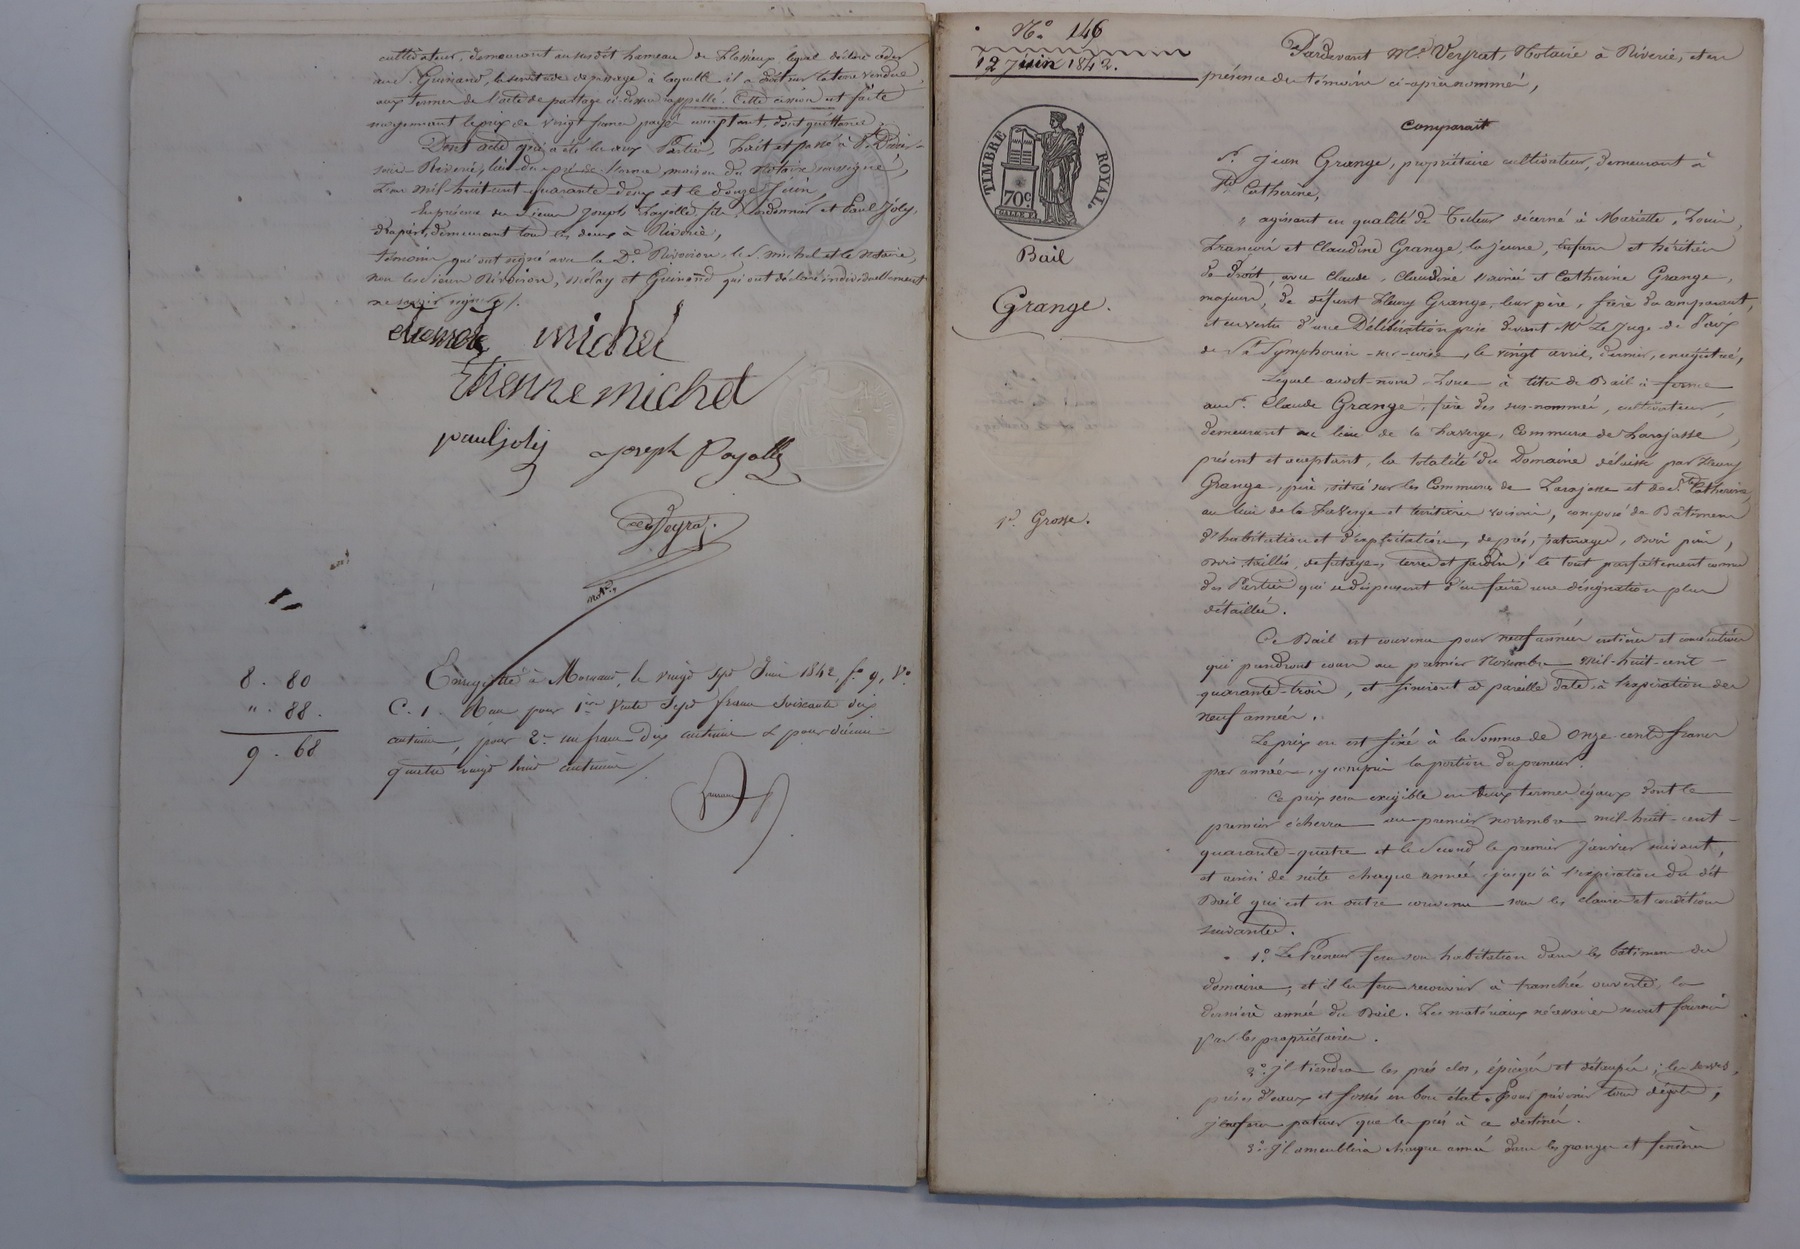 cultivateur, demeurant au susdit hameau de Flassieux lequel déclare céder
au Sr Guinand, la servitude de passage à laquelle il a droit sur la terre vendue
aux termes de l'acte de partage ci-dessus rappellé. Cette cession est faite
moyennant le prix de vingt francs payés comptant, dont quittance.
Dont acte qui a été lu aux Parties, Fait et passé à St Didier-
sous Riverie, lieu du
maison du Notaire soussigné,
L'an mil huit cent quarante deux et le douze Juin,
En présence des Sieurs Joseph Fayolle fils, cordonnier et Paul Joly,
drapier, demeurant tous les deux à Riverie,
témoins qui ont signé avec la De Rivoiron, le S. michel et le Notaire,
non les sieurs Rivoiron, et Guinand qui ont déclaré individuellement
ne savoir signer ./.
michel
Etienne michel
paul joly joseph Fayolle
Veyrat
notre
8 . 80
" . 88 .
9 . 68
Enregistré à Mornant, le vingt Sept Juin 1842, fo 9, Vo
C. 1. Reçu pour 1re Vente Sept francs Soixante dix
centimes, pour 2e un franc dix centimes & pour décime
quatre vingt huit centimes ./.
No 146
12 Juin 1842.
TIMBRE ROYAL.
70c
Bail
Grange.
1re Grosse.
Pardevant Me Veyrat, Notaire à Riverie, et en
présence des témoins ci-après nommés,
Comparait
Sr Jean Grange, propriétaire cultivateur, demeurant à
Ste Catherine,
agissant en qualité de Tuteur décerné à Mariette, Louis,
François et Claudine Grange, la jeune, enfans et héritiers
de droit, avec Claude, Claudine l'ainée et Catherine Grange,
majeurs, de défunt Fleury Grange, leur père, frère du comparant,
et en vertu d'une Délibération prise devant Mr Le Juge de Paix
de St Symphorien-sur-coise, le vingt avril, dernier, enregistrée,
Lequel audit-nom Loue à titre de Bail à ferme
au Sr Claude Grange, frère des sus-nommés, cultivateur,
demeurant au lieu de la Faverge, Commune de Larajasse,
présent et acceptant, la totalité du Domaine délaissé par Fleury
Grange, père, situé sur les Communes de Larajasse et de Ste Catherine
au lieu de la Faverge et territoires voisins, composé de Bâtimens
d'habitation et d'exploitation, de prés, paturages, Bois pins,
Bois taillis, de futaye, terres et jardin; le tout parfaitement connu
des Parties qui se dispensent d'en faire une désignation plus
détaillée.
Ce Bail est convenu pour neuf années entières et consécutives
qui prendront cours au premier Novembre mil-huit-cent-
quarante-trois, et finiront à pareille date, à l'expiration des
neuf années.
Le prix en est fixé à la Somme de Onze cents francs
par année, y compris la portion du preneur.
Ce prix sera exigible en deux termes égaux dont le
premier écherra au premier novembre mil-huit-cent-
quarante-quatre et le Second le premier Janvier suivant,
et ainsi de suite chaque année jusqu'à l'expiration du dit
Bail qui est en outre convenu sous les clauses et conditions
suivantes.
1o Le Preneur fera son habitation dans les bâtimens du
domaine, et il les fera recouvrir à tranchée ouverte, la
dernière année du Bail. Les matériaux nécessaires seront fournis
par les propriétaires.
2o Il tiendra les prés clos, épierrés et détaupés; les serves,
prises d'eaux et fossés en bon état. Pour prévenir tous dégats,
il ne fera paturer que les prés à ce destinés.
3o Il ameublira chaque année dans les granges et fenières